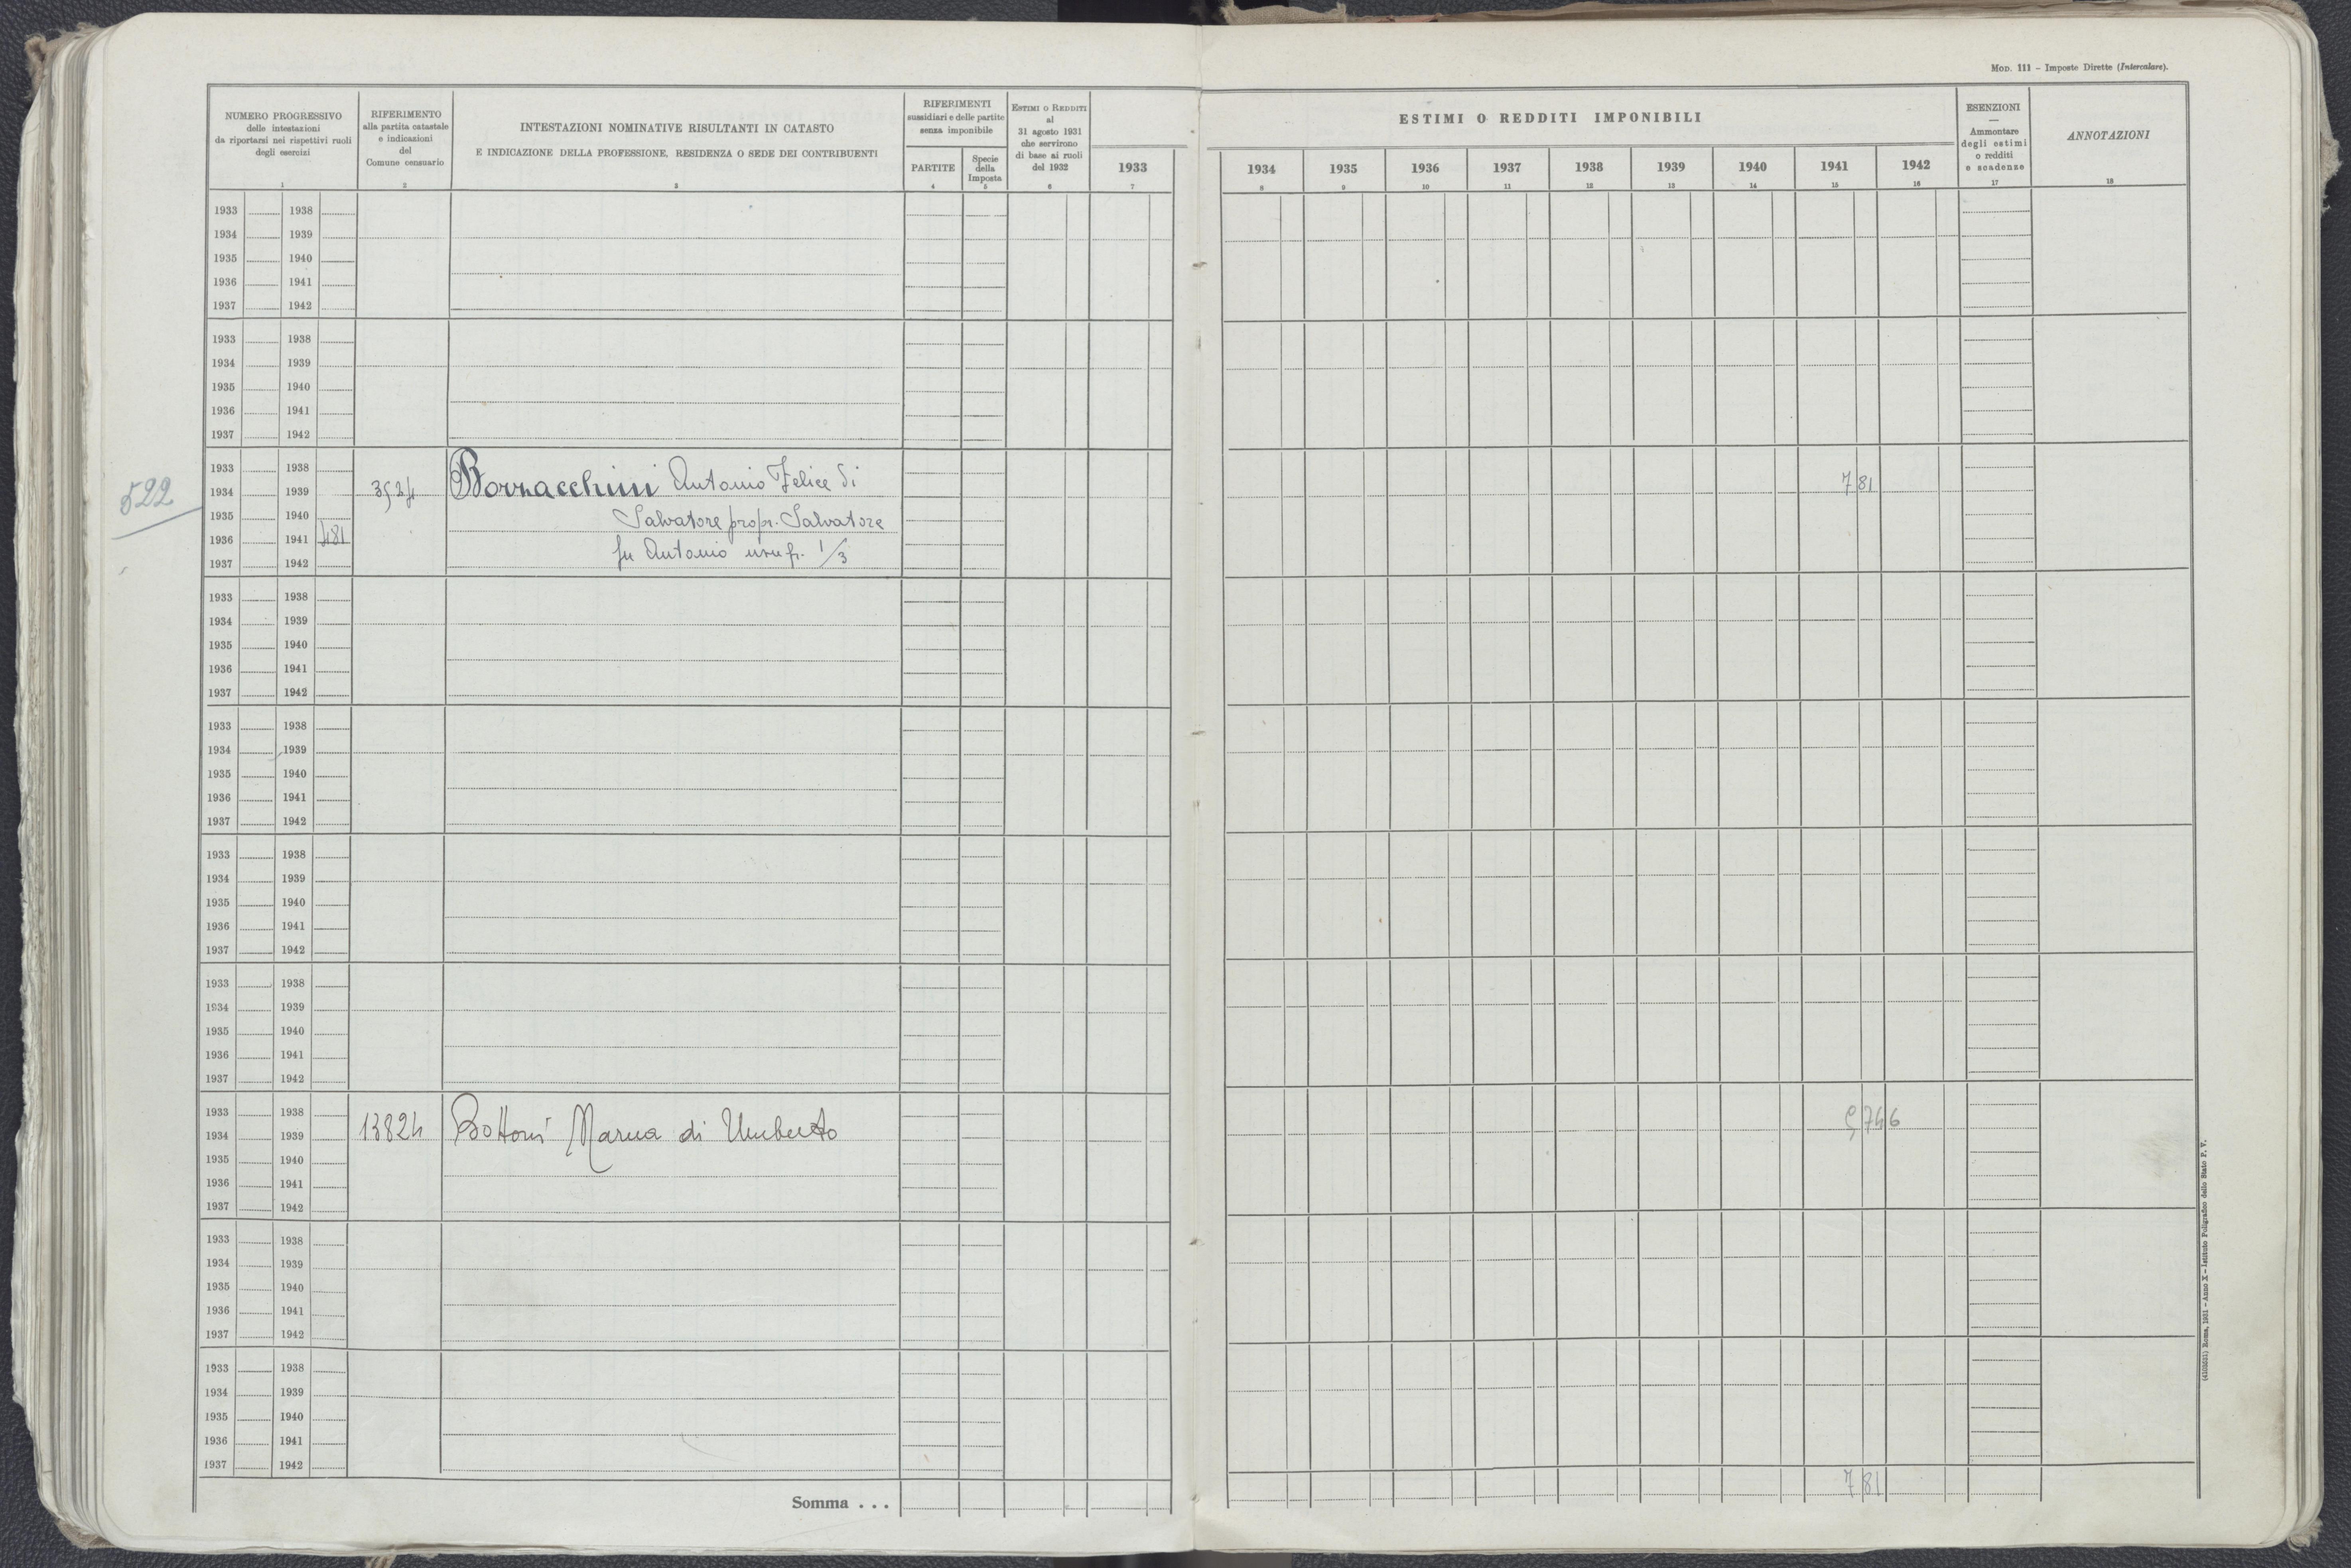 Mod. 111 – Imposte Dirette (Intercalare).
NUMERO PROGRESSIVO
delle intestazioni
da riportarsi nei rispettivi ruoli
degli esercizi
1
RIFERIMENTO
alla partita catastale
e indicazioni
del
Comune censuario
2
INTESTAZIONI NOMINATIVE RISULTANTI IN CATASTO
E INDICAZIONE DELLA PROFESSIONE, RESIDENZA O SEDE DEI CONTRIBUENTI
3
RIFERIMENTI
sussidiari e delle partite
senza imponibile
PARTITE
4
Specie
della
Imposta
5
Estimi o Redditi
al
31 agosto 1931
che servirono
di base ai ruoli
del 1932
6
1933
7
ESTIMI O REDDITI IMPONIBILI
1934 1935 1936 1937 1938 1939 1940 1941 1942
8 9 10 11 12 13 14 15 16
ESENZIONI
—
Ammontare
degli estimi
o redditi
e scadenze
17
ANNOTAZIONI
18
1933 1938
1934 1939
1935 1940
1936 1941
1937 1942
1933 1938
1934 1939
1935 1940
1936 1941
1937 1942
522
1933 1938
1934 1939 3524 Borracchini Antonio Felice di 7 81
1935 1940 Salvatore propr. Salvatore
1936 1941 481
fu Antonio usufr. 1/3
1937 1942
1933 1938
1934 1939
1935 1940
1936 1941
1937 1942
1933 1938
1934 1939
1935 1940
1936 1941
1937 1942
1933 1938
1934 1939
1935 1940
1936 1941
1937 1942
1933 1938
1934 1939
1935 1940
1936 1941
1937 1942
1933 1938
1934 1939 13824 Bottoni Marua di Umberto
1935 1940
1936 1941
1937 1942
1933 1938
1934 1939
1935 1940
1936 1941
1937 1942
1933 1938
1934 1939
1935 1940
1936 1941
1937 1942
Somma . . . 7 81
Roma, 1931 – Anno X – Istituto Poligrafico dello Stato P. V.